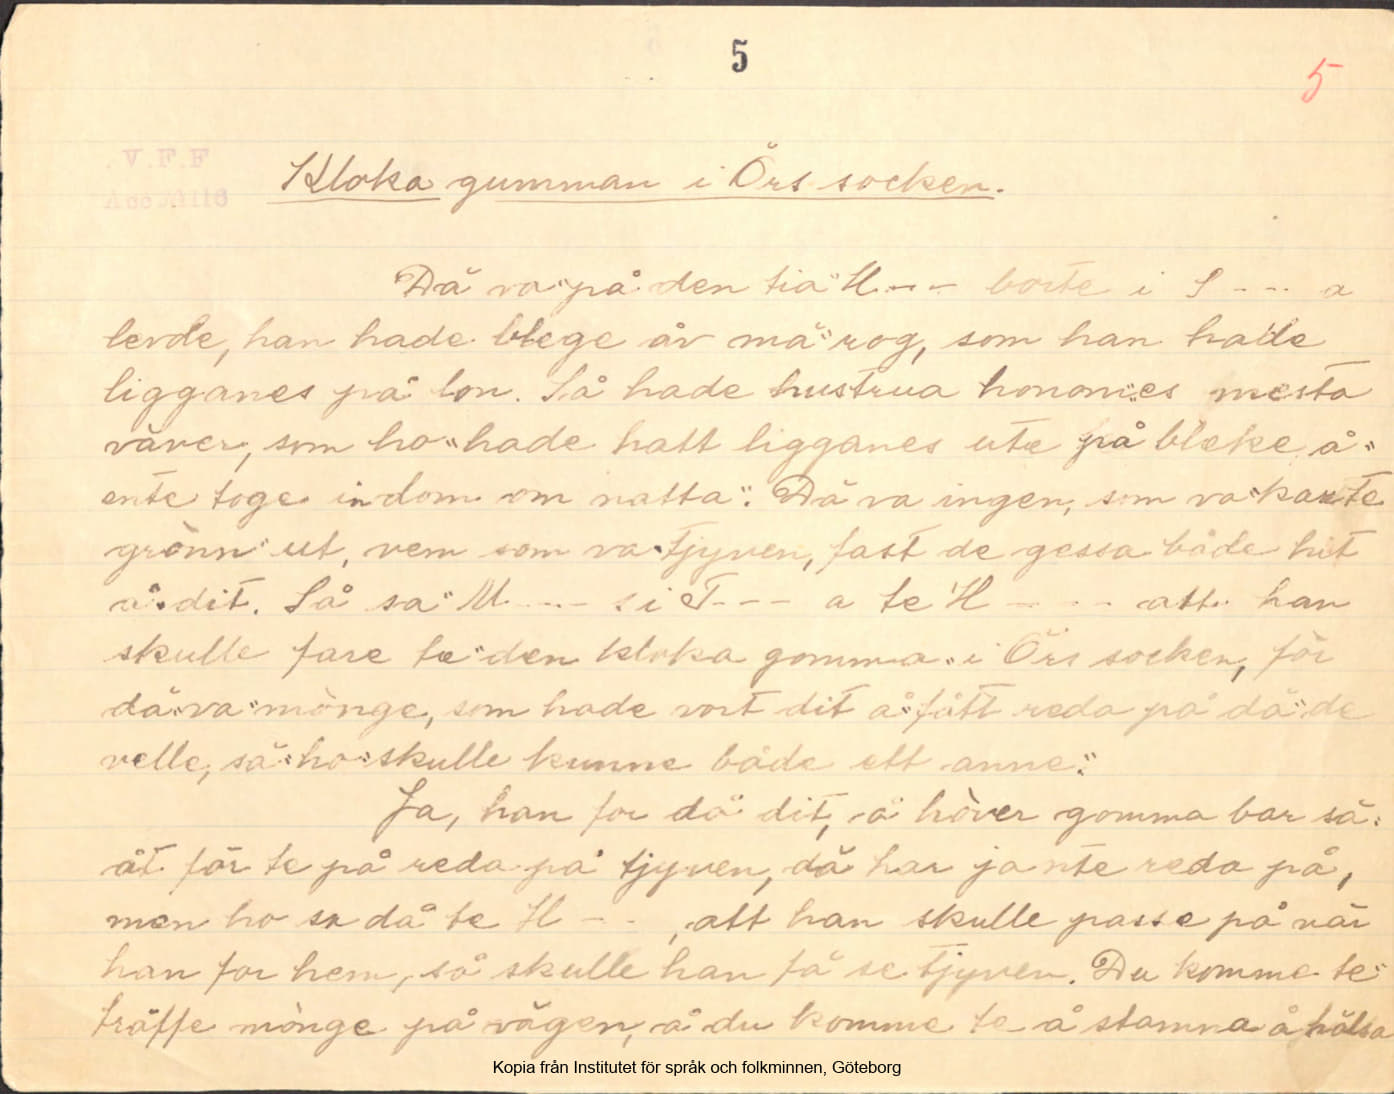 5
5
V.F.F
Acc
Kloka gumman i Örs socken.
Dä va på den tia H--- borte i S--- a
levde, han hade blege åv mä rog, som han hade
ligganes på lon. Så hade hustrua honom es mesta
väver, som ho hade hatt ligganes ute på bleke å
ente toge in dom om natta. Dä va ingen, som va karte
grònn ut, vem som va tjyven, fast de gessa både hit
å dit. Så sa M---- s i T--- a te H---- att han
skulle fare te den kloka gomma i Örs socken, för
dä va mònge, som hade vort dit å fått reda på dä de
velle, så ho skulle kunne både ett anne.
Ja, han for då dit, å hòver gomma bar sä
åt för te på reda på tjyven, dä har ja nte reda på,
men ho sa då te H--- , att han skulle passe på när
han for hem, så skulle han få se tjyven. Du komme te
träffe mònge på vägen, å du komme te å stamna å hälsa
Kopia från Institutet för språk och folkminnen, Göteborg